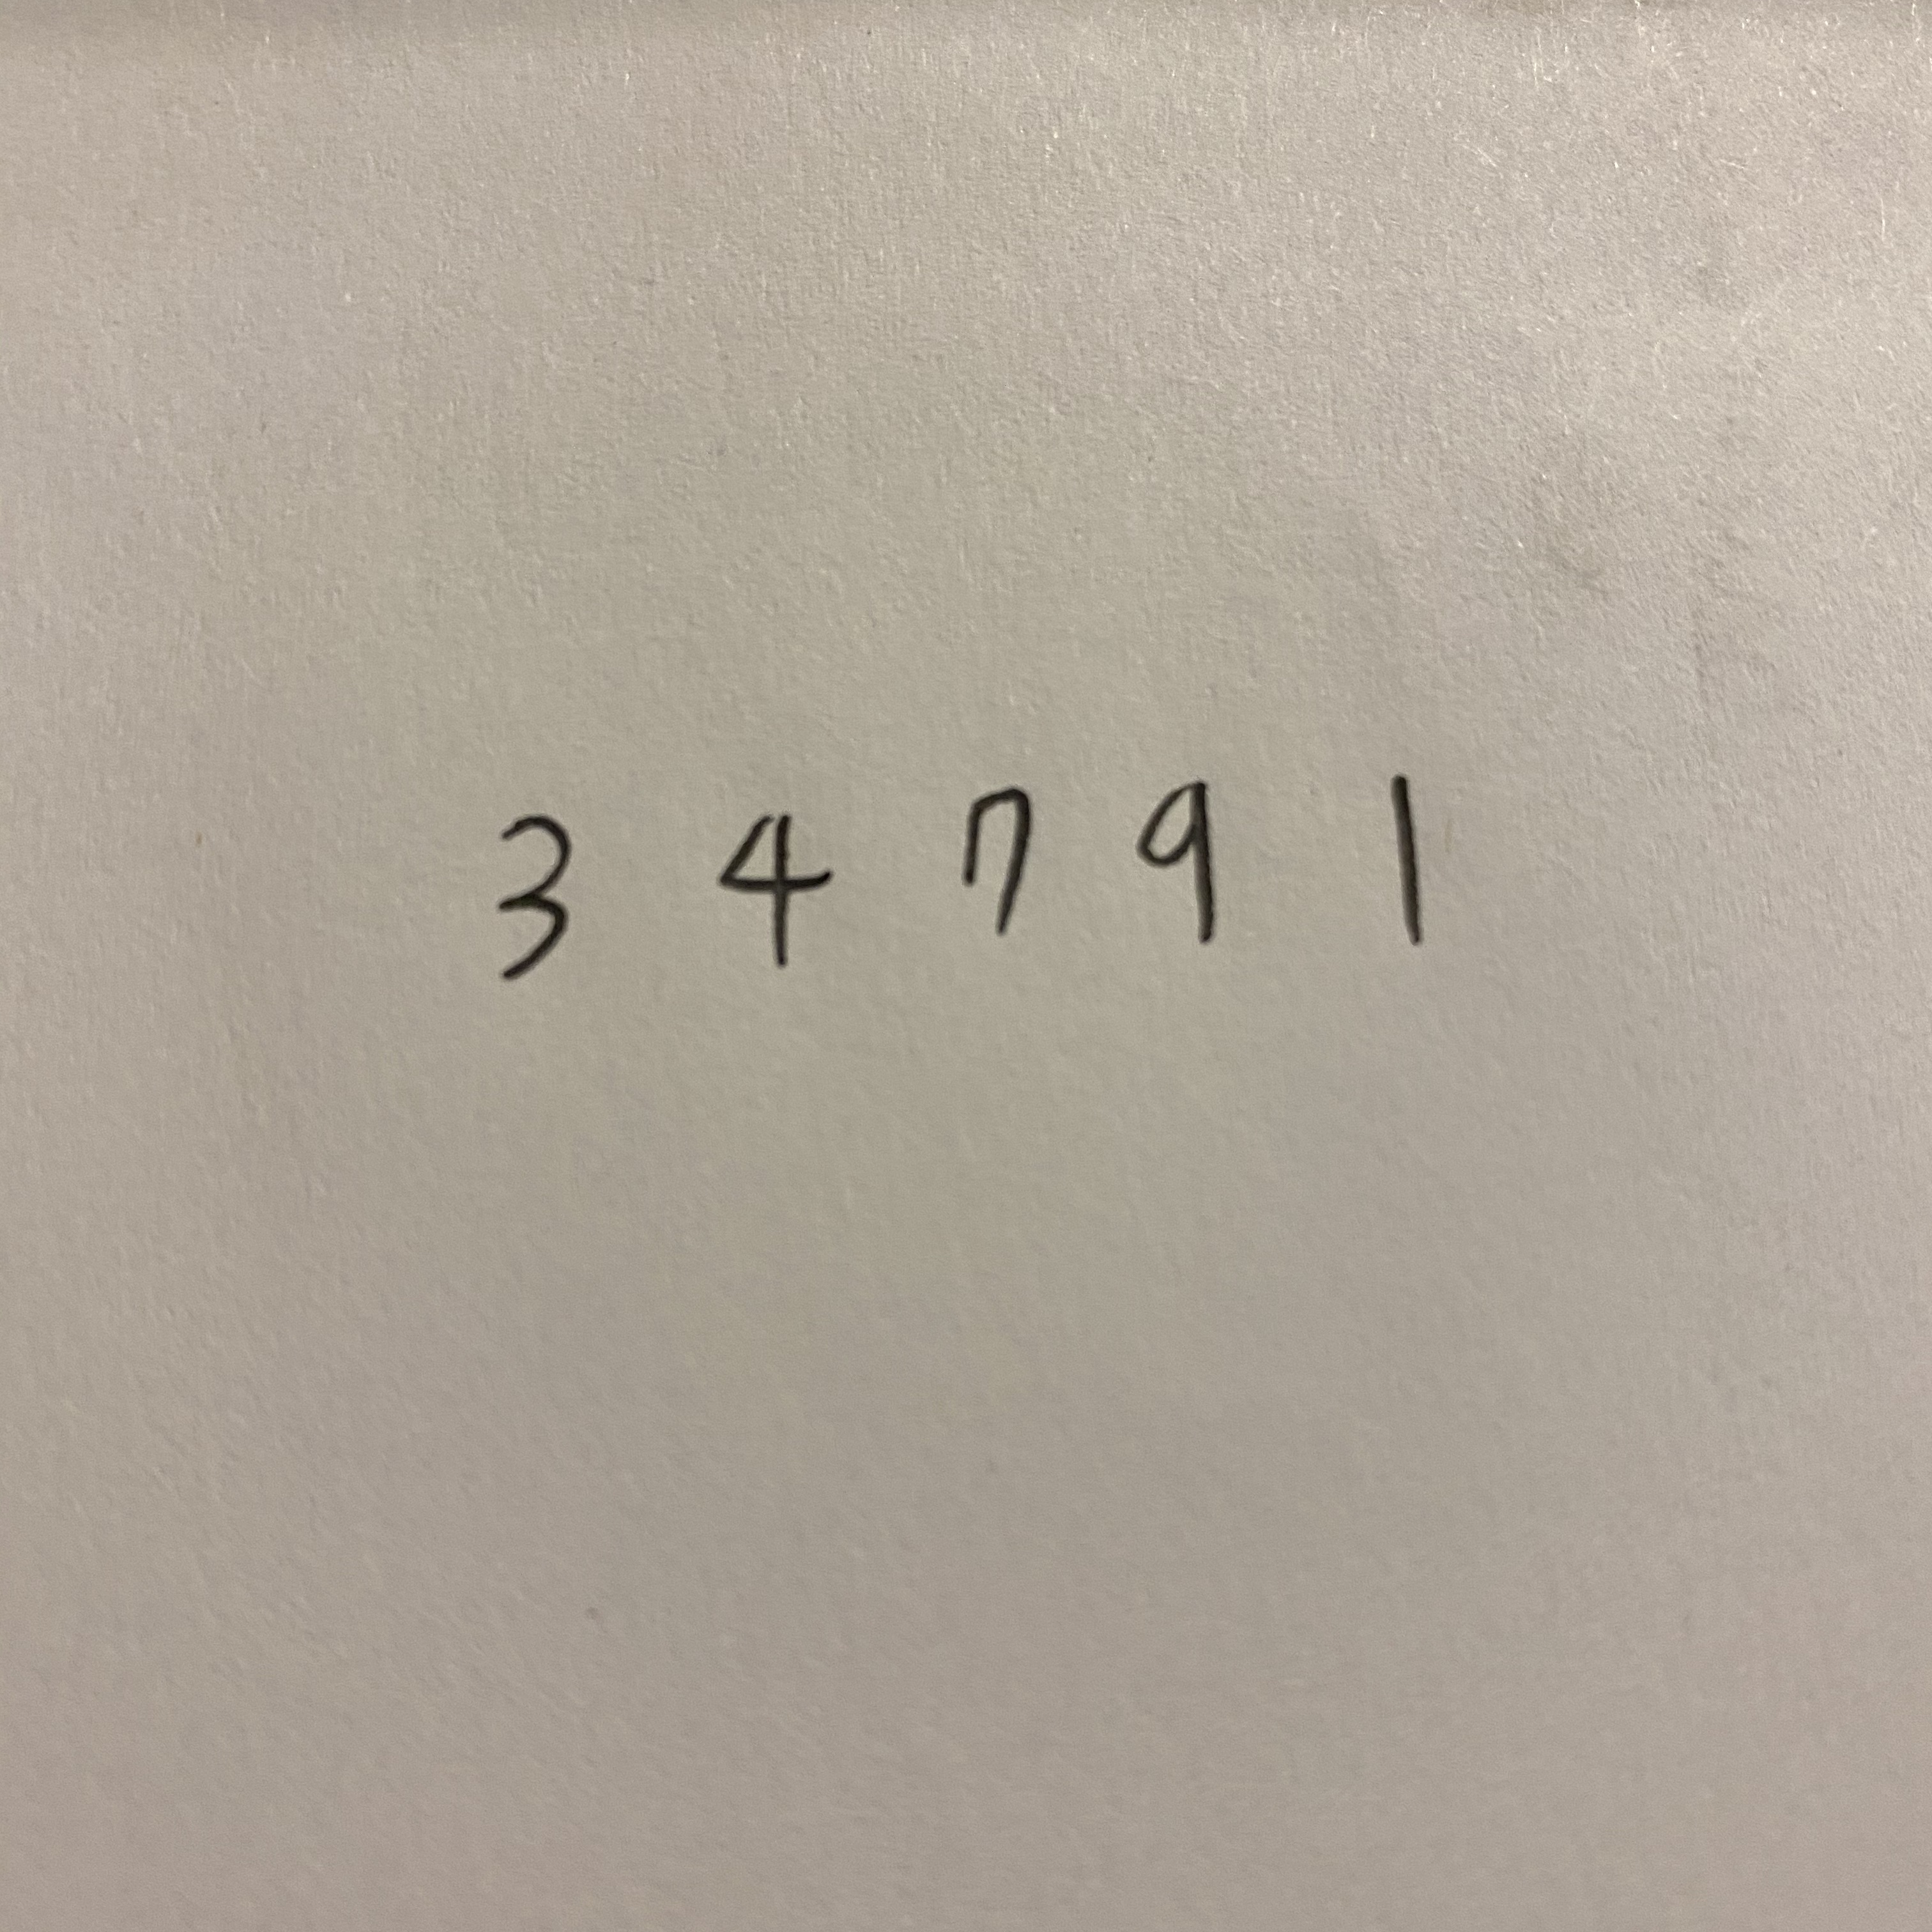 3 4 7 9 1